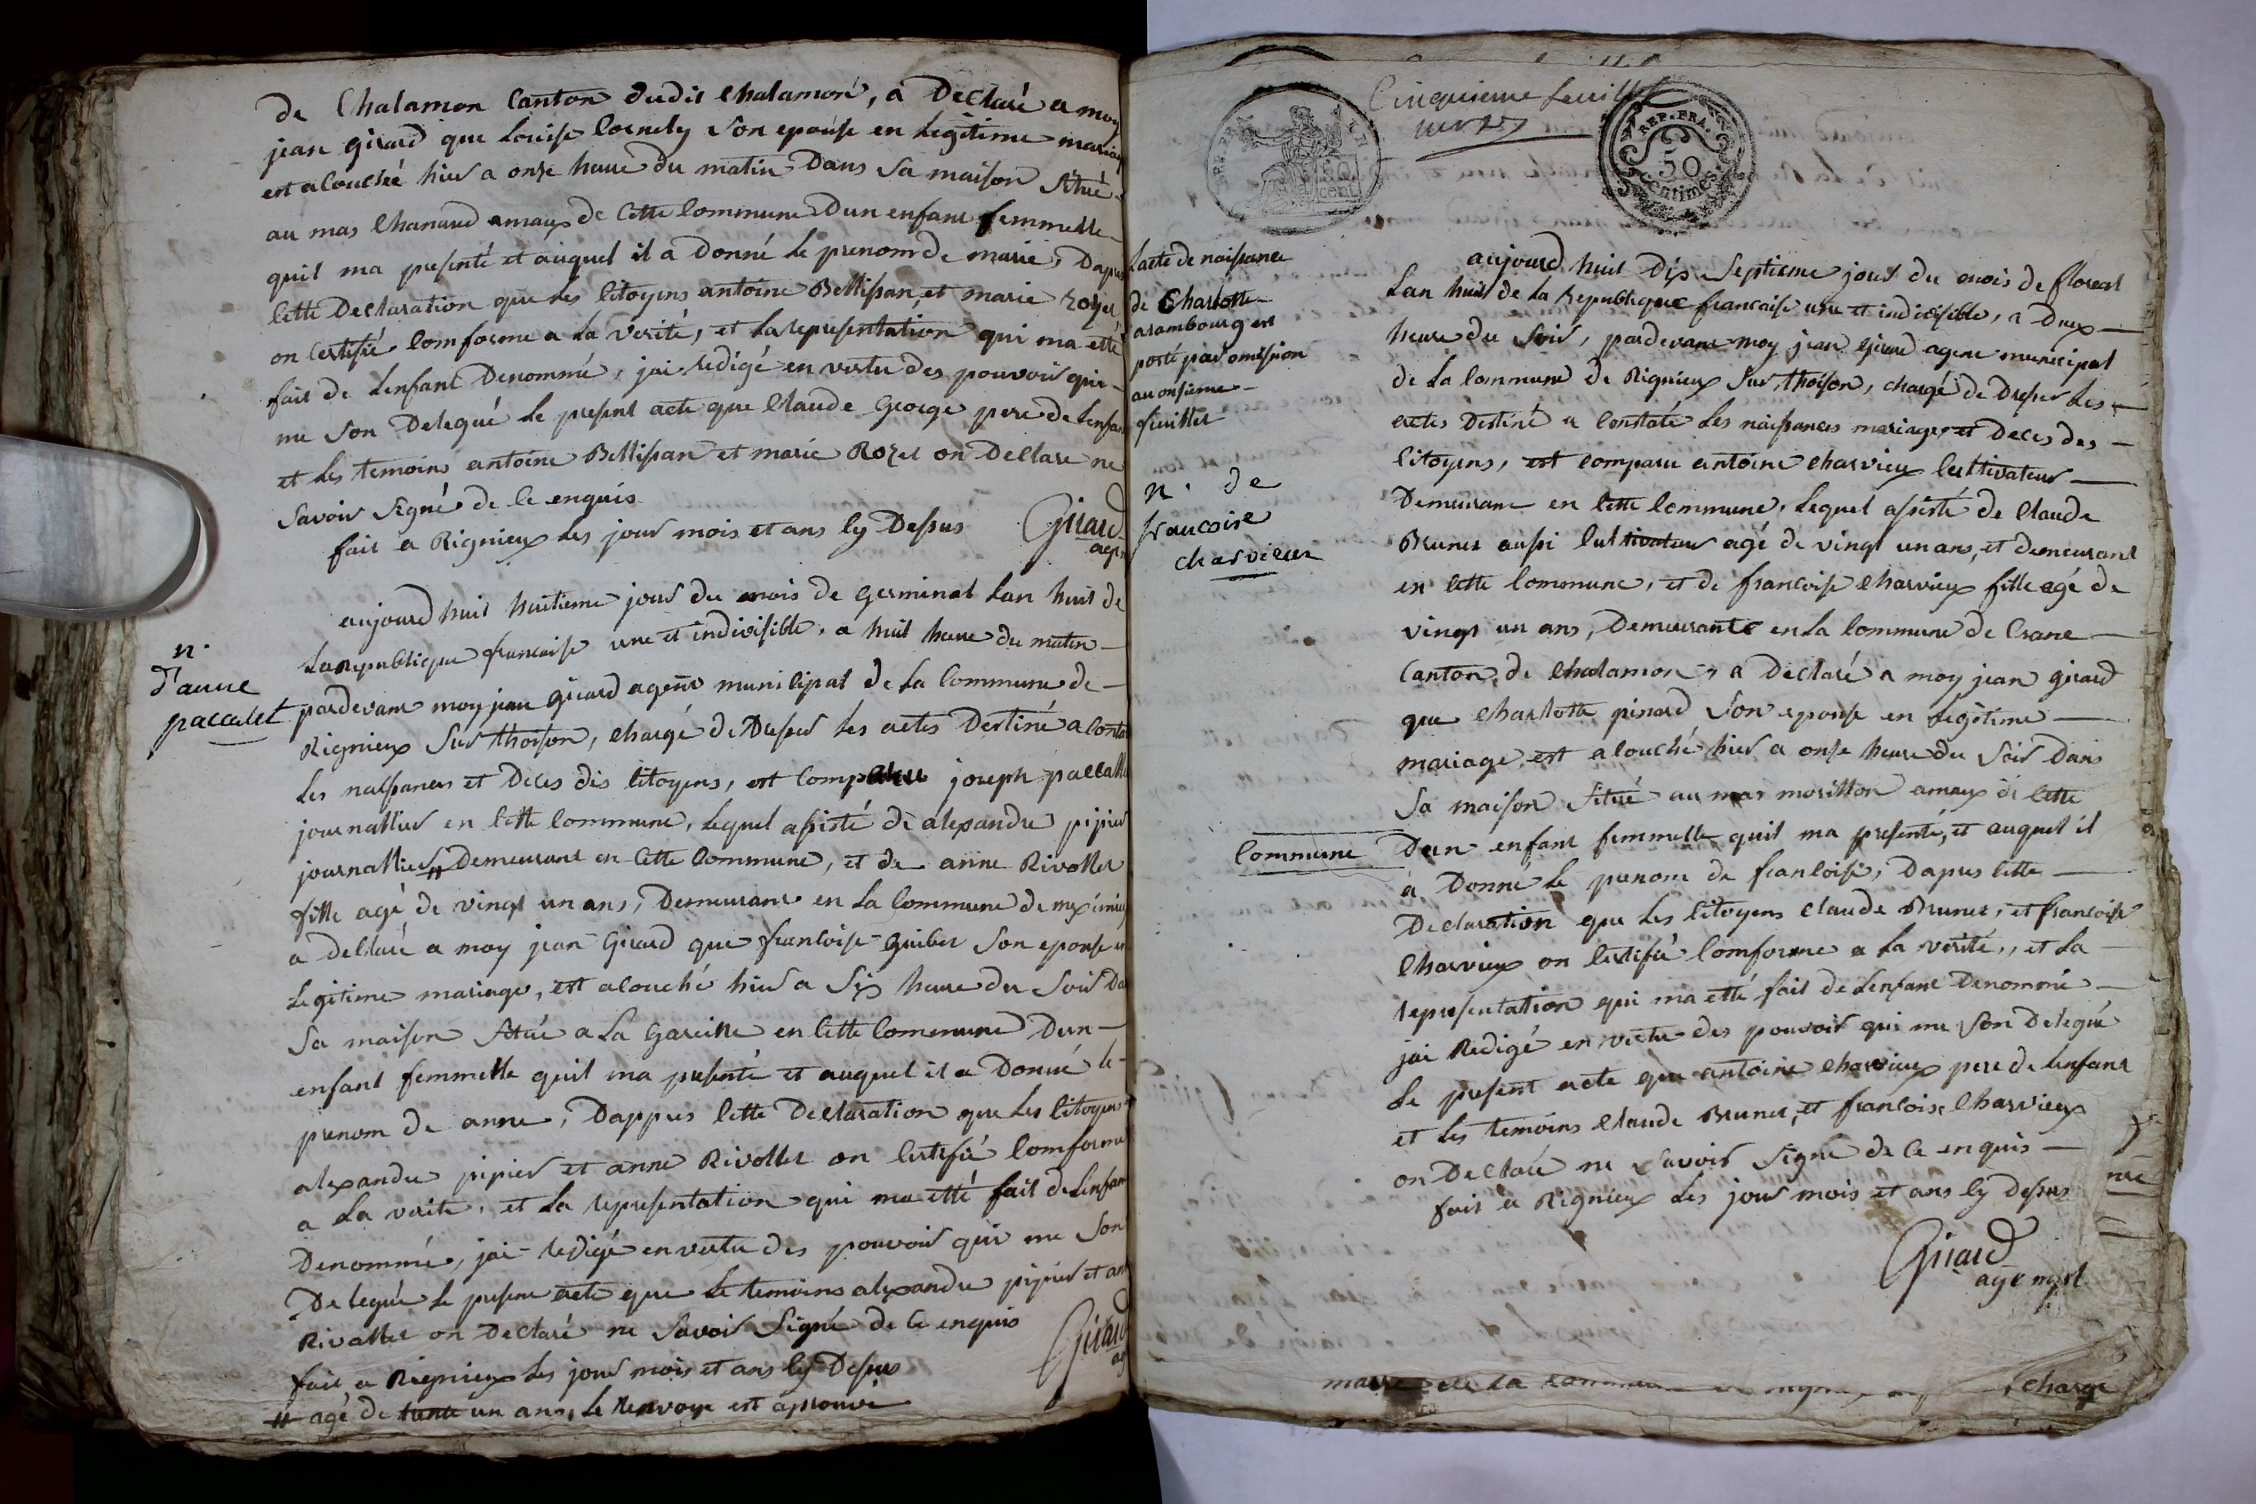 de Chalamon Canton dudit Chalamon, a Declaré a moy
jean girard que Louise Cornely Son epouse en Legitime mariag
est acouchée hier a onze heure du matin Dans Sa maison Situé
au mas Chanaud amaux de Cette Commune Dun enfant femmelle
quil ma presenté et auquel il a Donné Le prenom de marie, Dapres
Cette Declaration que Les Citoyens antoine Bellissan et marie Rozet
on Certifié Comforme a La verité, et La representation qui ma etté
fait de Lenfant Denommé, jai redigé en vertu des pouvoir qui
me Son Delegué Le present acte que Claude George pere de Lenfan
et Les temoins antoine Bellissan et marie Rozet on Declare ne
Savoir Signé de Ce enquis
fait a Rignieux Les jour mois et ans Cy Dessus
Girard
age
n.
d'anne
paccalet
aujourd huit huitieme jour du mois de germinal Lan huit de
La republique francaise une et indivisible, a huit heure du matin
pardevant moy jean girard agent municipal de La Commune de
Rignieux Sur thoison, chargé de Dresser Les actes Destiné a Consta
Les naissances et Deces des Citoyens, est Comparu joseph paccalle
journallier en Cette Commune, Lequel assisté de alexandre pipier
journallier Demeurant en Cette Commune, et de anne Rivollet
fille agé de vingt un ans, Demeurant en La Commune de meximieu
a declaré a moy jean Girard que francoise guibet Son epouse en
Legitime mariage, est acouché hier a Six heure du Soir Da
Sa maison Situé a La Gareille en Cette Commune Dun
enfant femmelle quil ma presenté et auquel il a Donné le
prenom de anne, Dappres Cette Declaration que Les Citoyens
alexandre pipier et anne Rivollet on Certifié Comforme
a La verite, et La representation qui ma etté fait de Lenfan
Denommé, jai redigé en vertu des pouvoir qui me Son
Delegué Le present acte que Le temoins alexandre pipier et an
Rivallet on Declaré ne Savoir Signé de Ce enquis
Girard
ag
fait a Rignieux Les jour mois et ans Cy Dessus
# agé de trente un ans, Le Renvoye est approuvé
Cinquieme feuillet
verso
REP. FRA.
50
centimes
Lacte de naissance
de Charlotte
arambourg est
porté par omission
au onsieme
feuillet
n. de
francoise
charvieux
aujourd huit Dix Septieme jour du mois de floreal
Lan huit de La Republique francaise une et indivisible, a Deux
heure du Soir, pardevant moy jean girard agent municipal
de La Commune de Rignieux Sur thoison, chargé de Dresser Les
actes Destiné a Constaté Les naissances mariages et Deces des
Citoyens, est comparu antoine charvieux Cultivateur
Demeurant en Cette Commune, Lequel assisté de Claude
Brunet aussi Cultivateur agé de vingt un ans, et demeurant
en Cette Commune, et de francoise Charvieux fille agé de
vingt un ans, Demeurante en La Commune de Crane
Canton de Chalamon, a Declaré a moy jean girard
que Charlotte pinard Son epouse en Legitime
mariage est acouché hier a onse heure du Soir Dans
Sa maison Situé au mas morillon amaux de Cette
Commune Dun enfant femmelle quil ma presenté, et auquel il
a Donné Le prenom de francoise, Dapres Cette
Declaration que Les Citoyens Claude Brunet, et francoise
Charvieux on Certifié Comforme a La verité, et La
representation qui ma etté fait de Lenfant Denommé
jai Redigé en vertu des pouvoir qui me Son Delegué
Le present acte que antoine charvieux pere de Lenfant
et Les temoins Claude Brunet, et francoise Charvieux
on Declaré ne Savoir Signé de Ce enquis
fait a Rignieux Les jour mois et ans Cy dessus
Girard
age mpl
de La commune
chargé